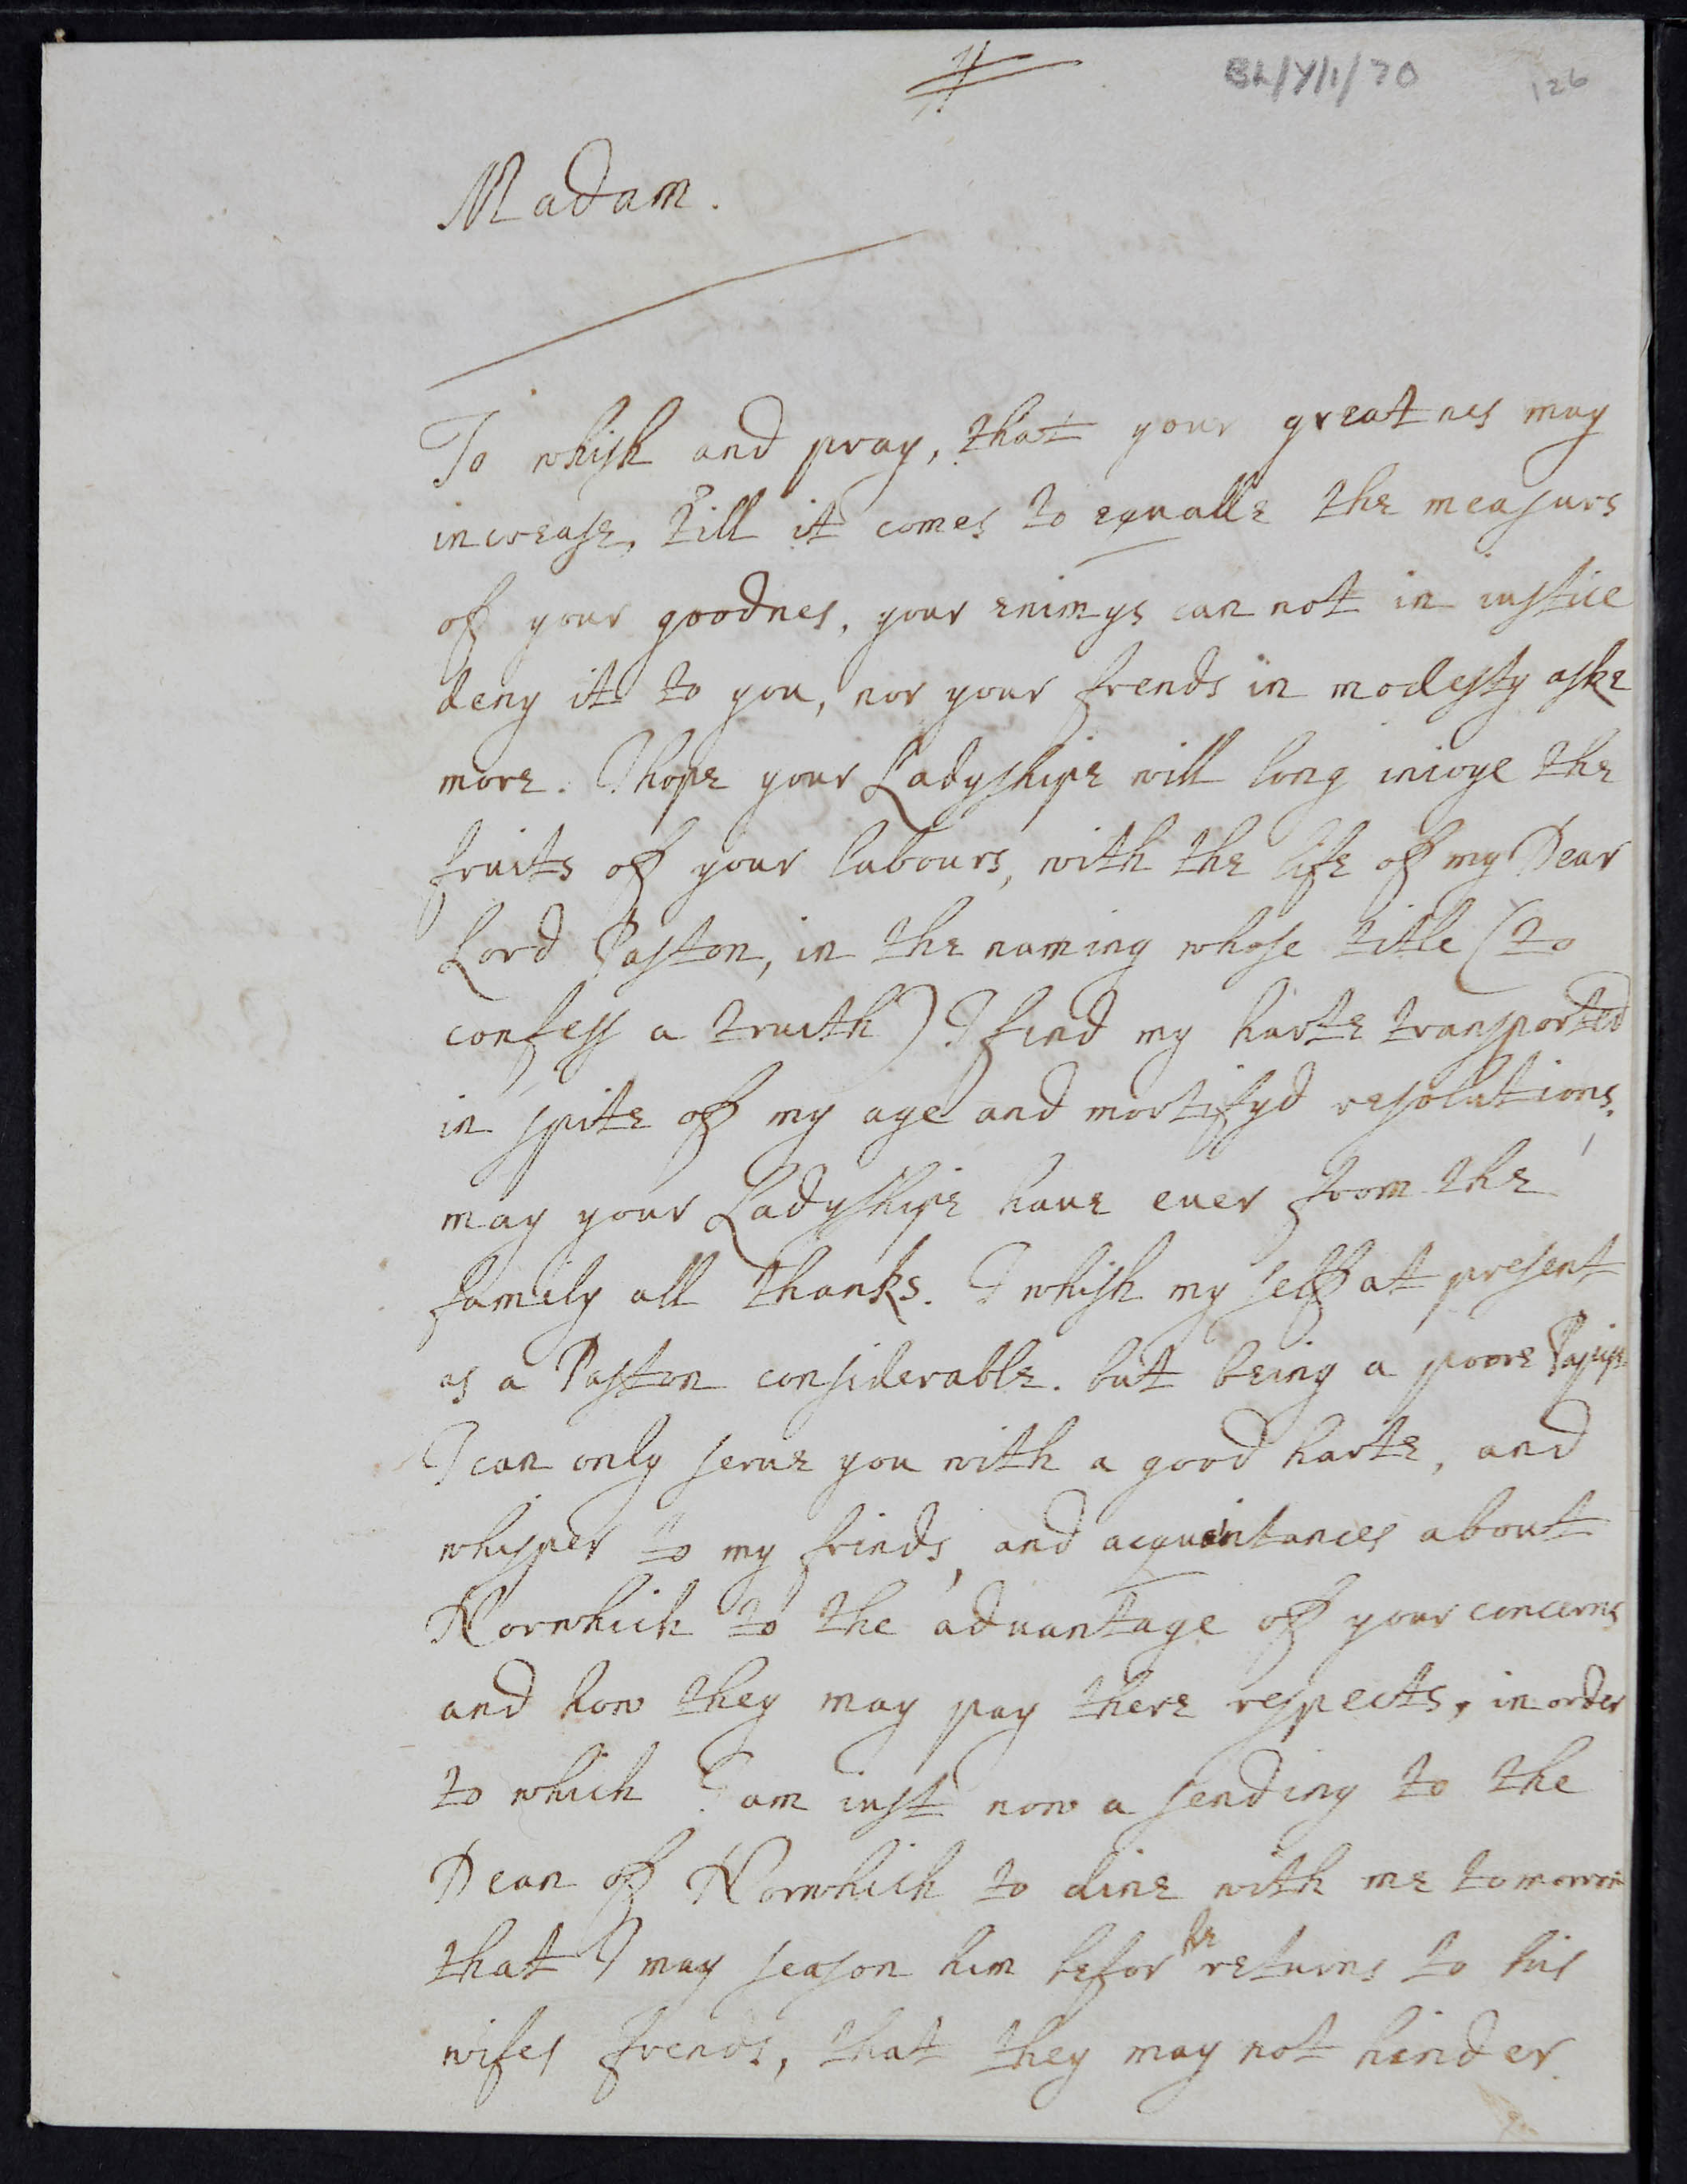 BL/Y/1/70
126
Madam.
To whish and pray, that your greatnes may
increase, till it comes to equalle the measurs
of your goodnes, your enimys can not in iustice
deny it to you, nor your frends in modesty aske
more. I hope your Ladyshipe will long inioye the
fruits of your labours, with the life of my Dear
Lord Paston, in the naming whose title (to
confess a truith) I find my harte transported
in spite of my age and mortifyd resolutions,
may your Ladyshipe haue euer from the
family all thanks. I whish my self at present
as a Paston considerable. but being a poore Papist
I can only serue you with a good harte, and
whisper to my frinds, and acquaintances about
Norwhich to the aduantage of your concerns
and how they may pay there respects, in order
to which I am iust now a sending to the
Dean of Norwhich to dine with me tomorrow
that I may season him befor he returns to his
wifes frends, that they may not hinder.